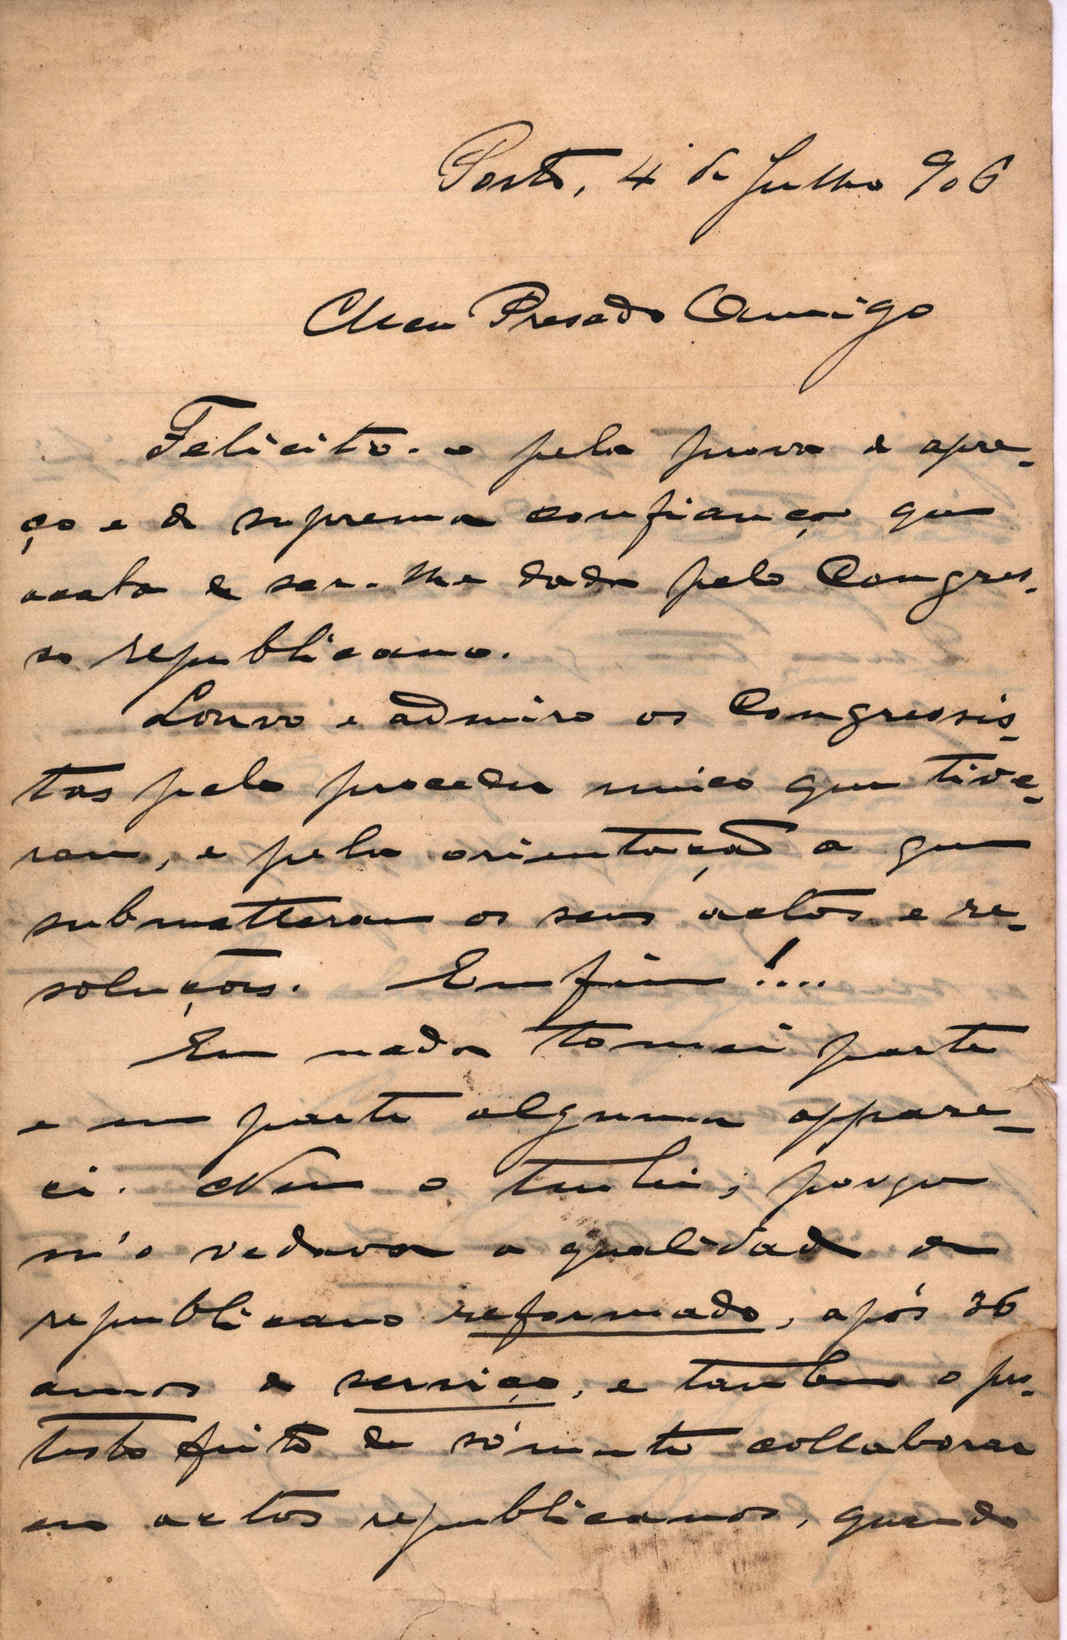 Porto, 4 de Julho 906
Meu Presado Amigo
Felicito-o pela prova de apre-
ço e de suprema confiança que
acaba de ser-lhe dada pelo Congres-
so republicano.
Louvo e admiro os Congressis-
tas pelo proceder unico que tive-
ram, e pela orientação a que
submetteram os seus actos e re-
soluções. Emfim!....
Em nada tomei parte
e em parte alguma appare-
ci. Nem o tentei, porque
m'o vedava a qualidade de
republicano reformado, após 36
annos de serviço, e tambem o pro-
testo feito de sómente collaborar
em actos republicanos, quando